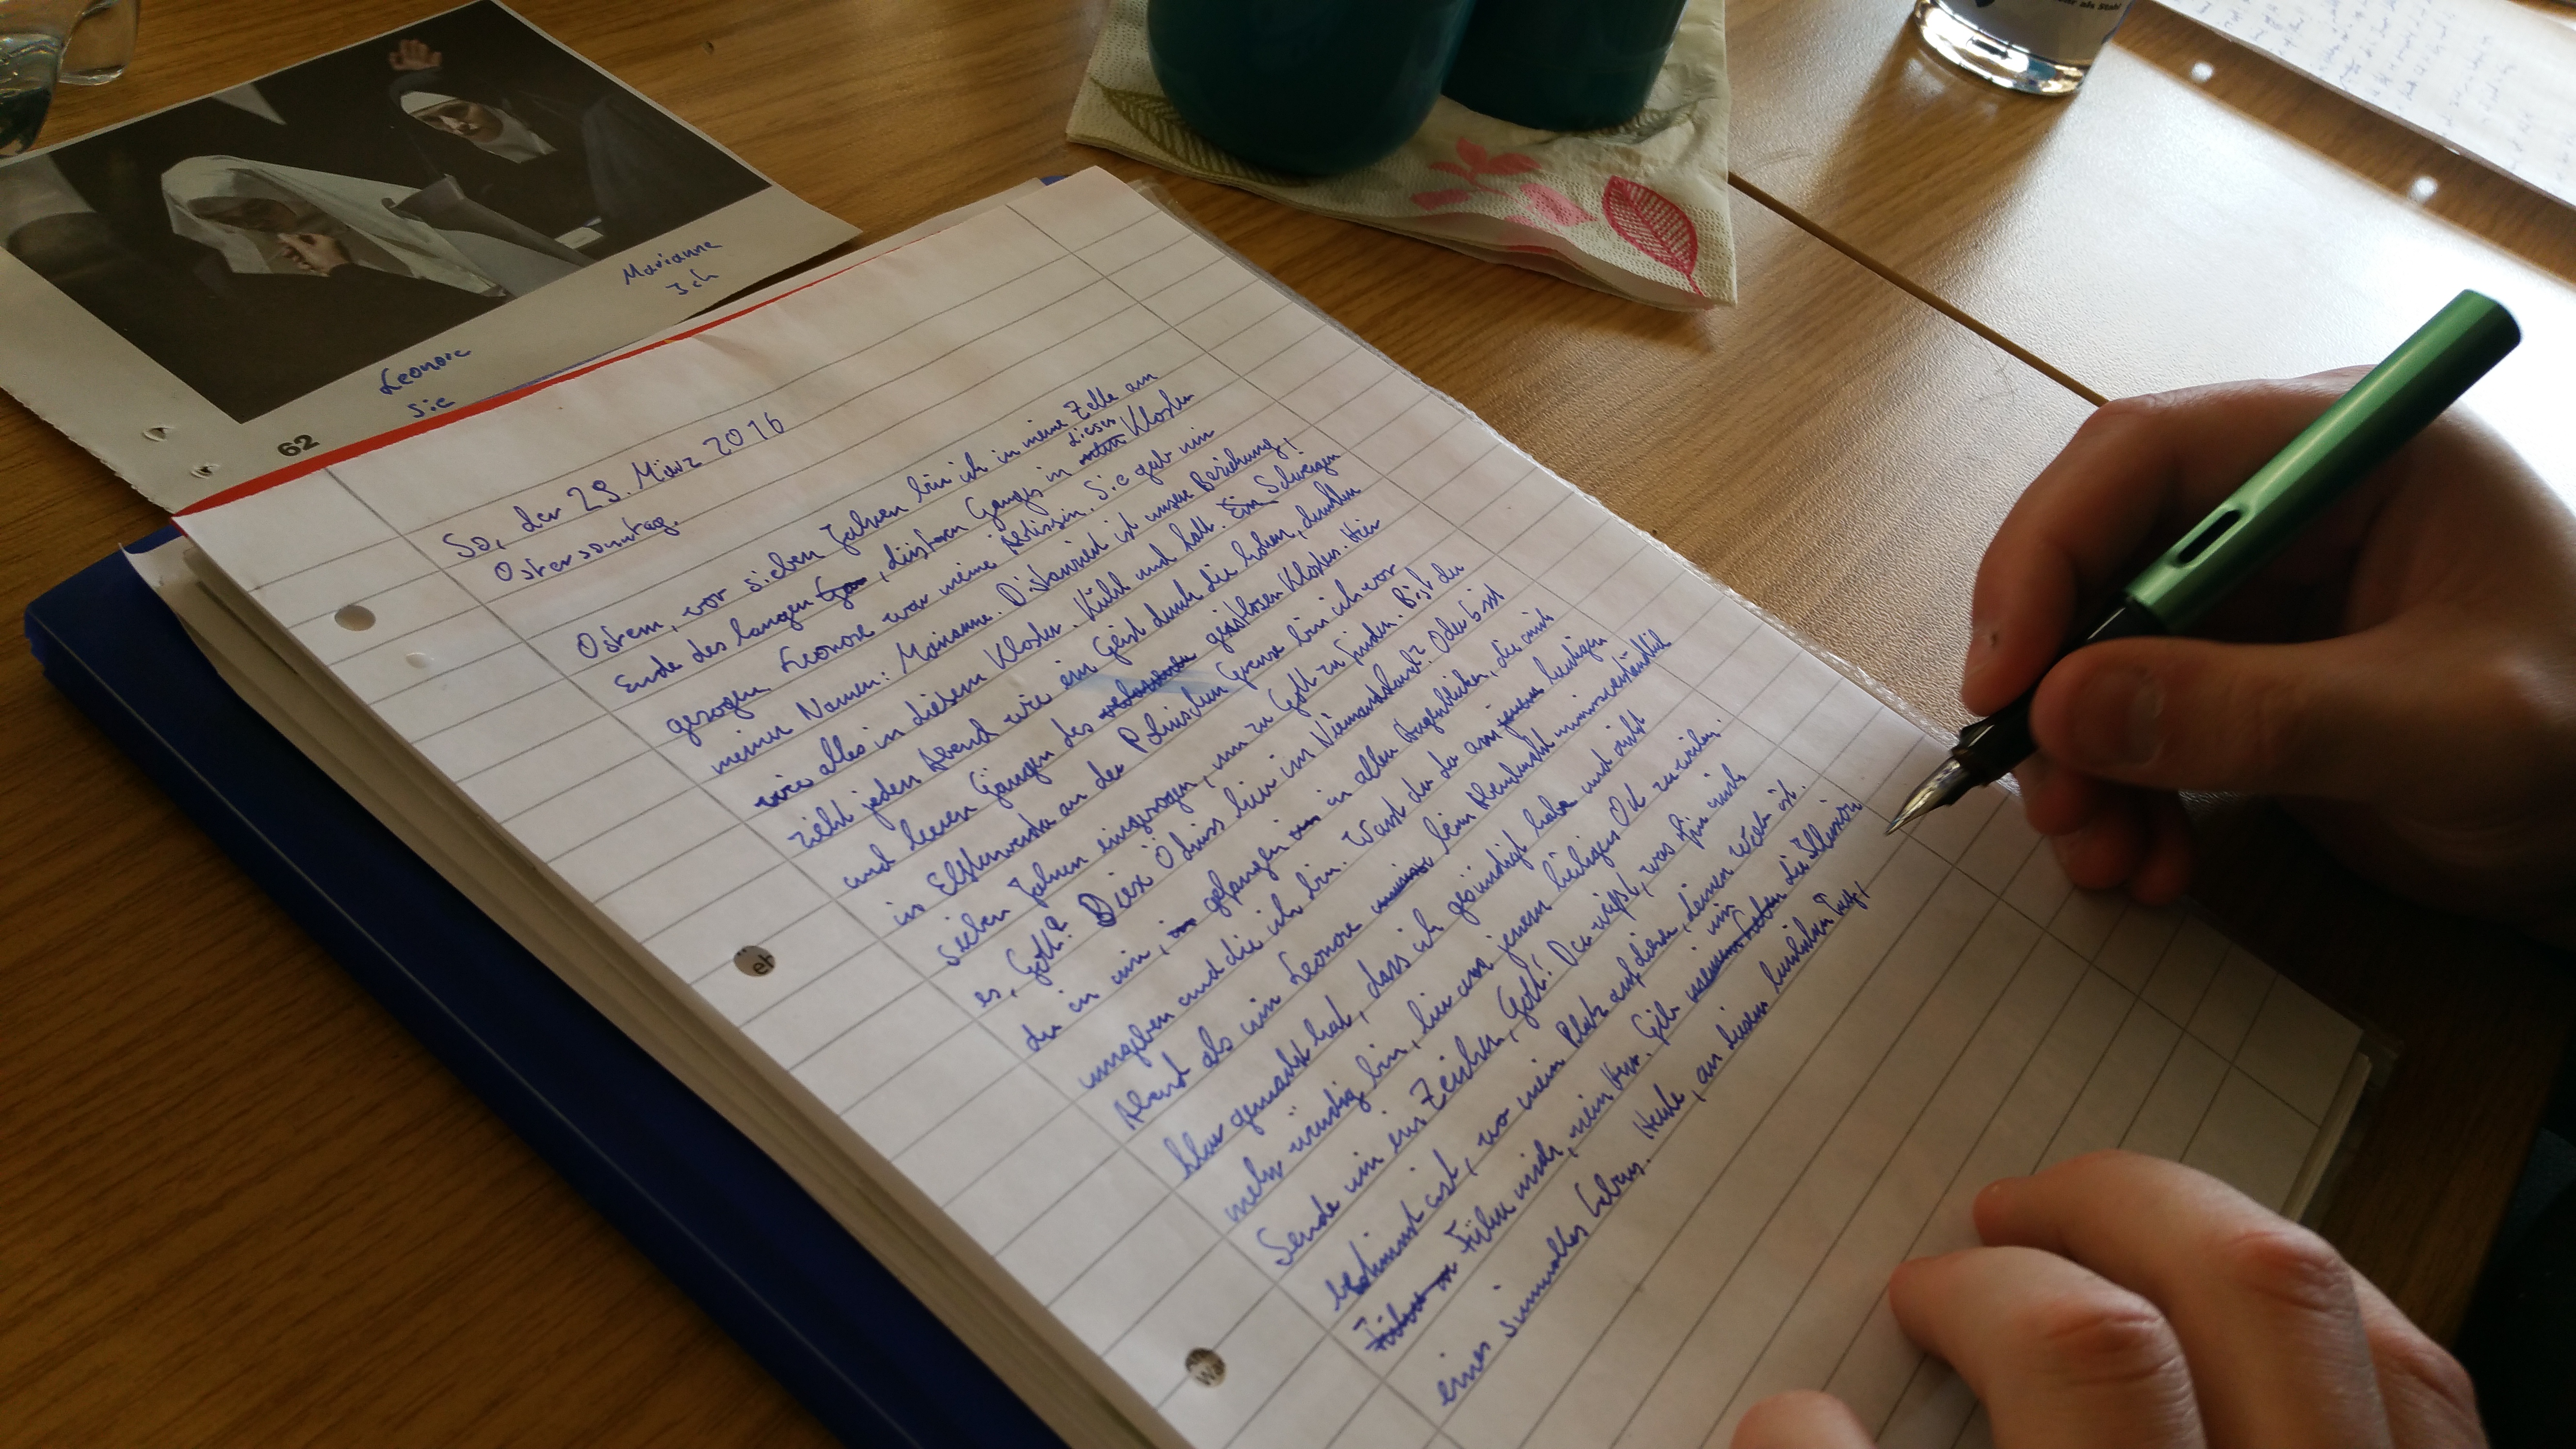 Marianne
Ich
Leonore
Sie
62
So, der 29. März 2016
Ostersonntag.
Ostern, vor sieben Jahren bin ich in meine Zelle am
Ende des langen, düsteren Ganges in dieses Kloster
gezogen. Leonore war meine Äbtissin. Sie gab mir
meinen Namen: Marianne. Distanziert ist unsere Beziehung,
wie alles in diesem Kloster. Kühl und kalt. Ein Schweigen
zieht jeden Abend wie ein Geist durch die hohen, dunklen
und leeren Gängen des geistlosen Klosters. Hier
in Elsterwerda an der Polnischen Grenze bin ich vor
sieben Jahren eingezogen, um zu Gott zu finden. Bist du
es, Gott? Diese Ödnis hier im Niemandsland? Oder bist
du in mir, gefangen in allen Augenblicken, die mich
umgeben und die ich bin. Warst du da am heutigen
Abend als mir Leonore beim Abendmahl unmissverständlich
klar gemacht hat, dass ich gesündigt habe und nicht
mehr würdig bin, hier an jenem heiligen Ort zu weilen.
Sende mir ein Zeichen, Gott! Du weißt, was für mich
bestimmt ist, wo mein Platz auf dieser, deiner Welt ist.
Führe mich, mein Herr. Gib mir die Illusion
eines sinnvollen Lebens. Heute, an diesem Tag,
eh
als Stahl